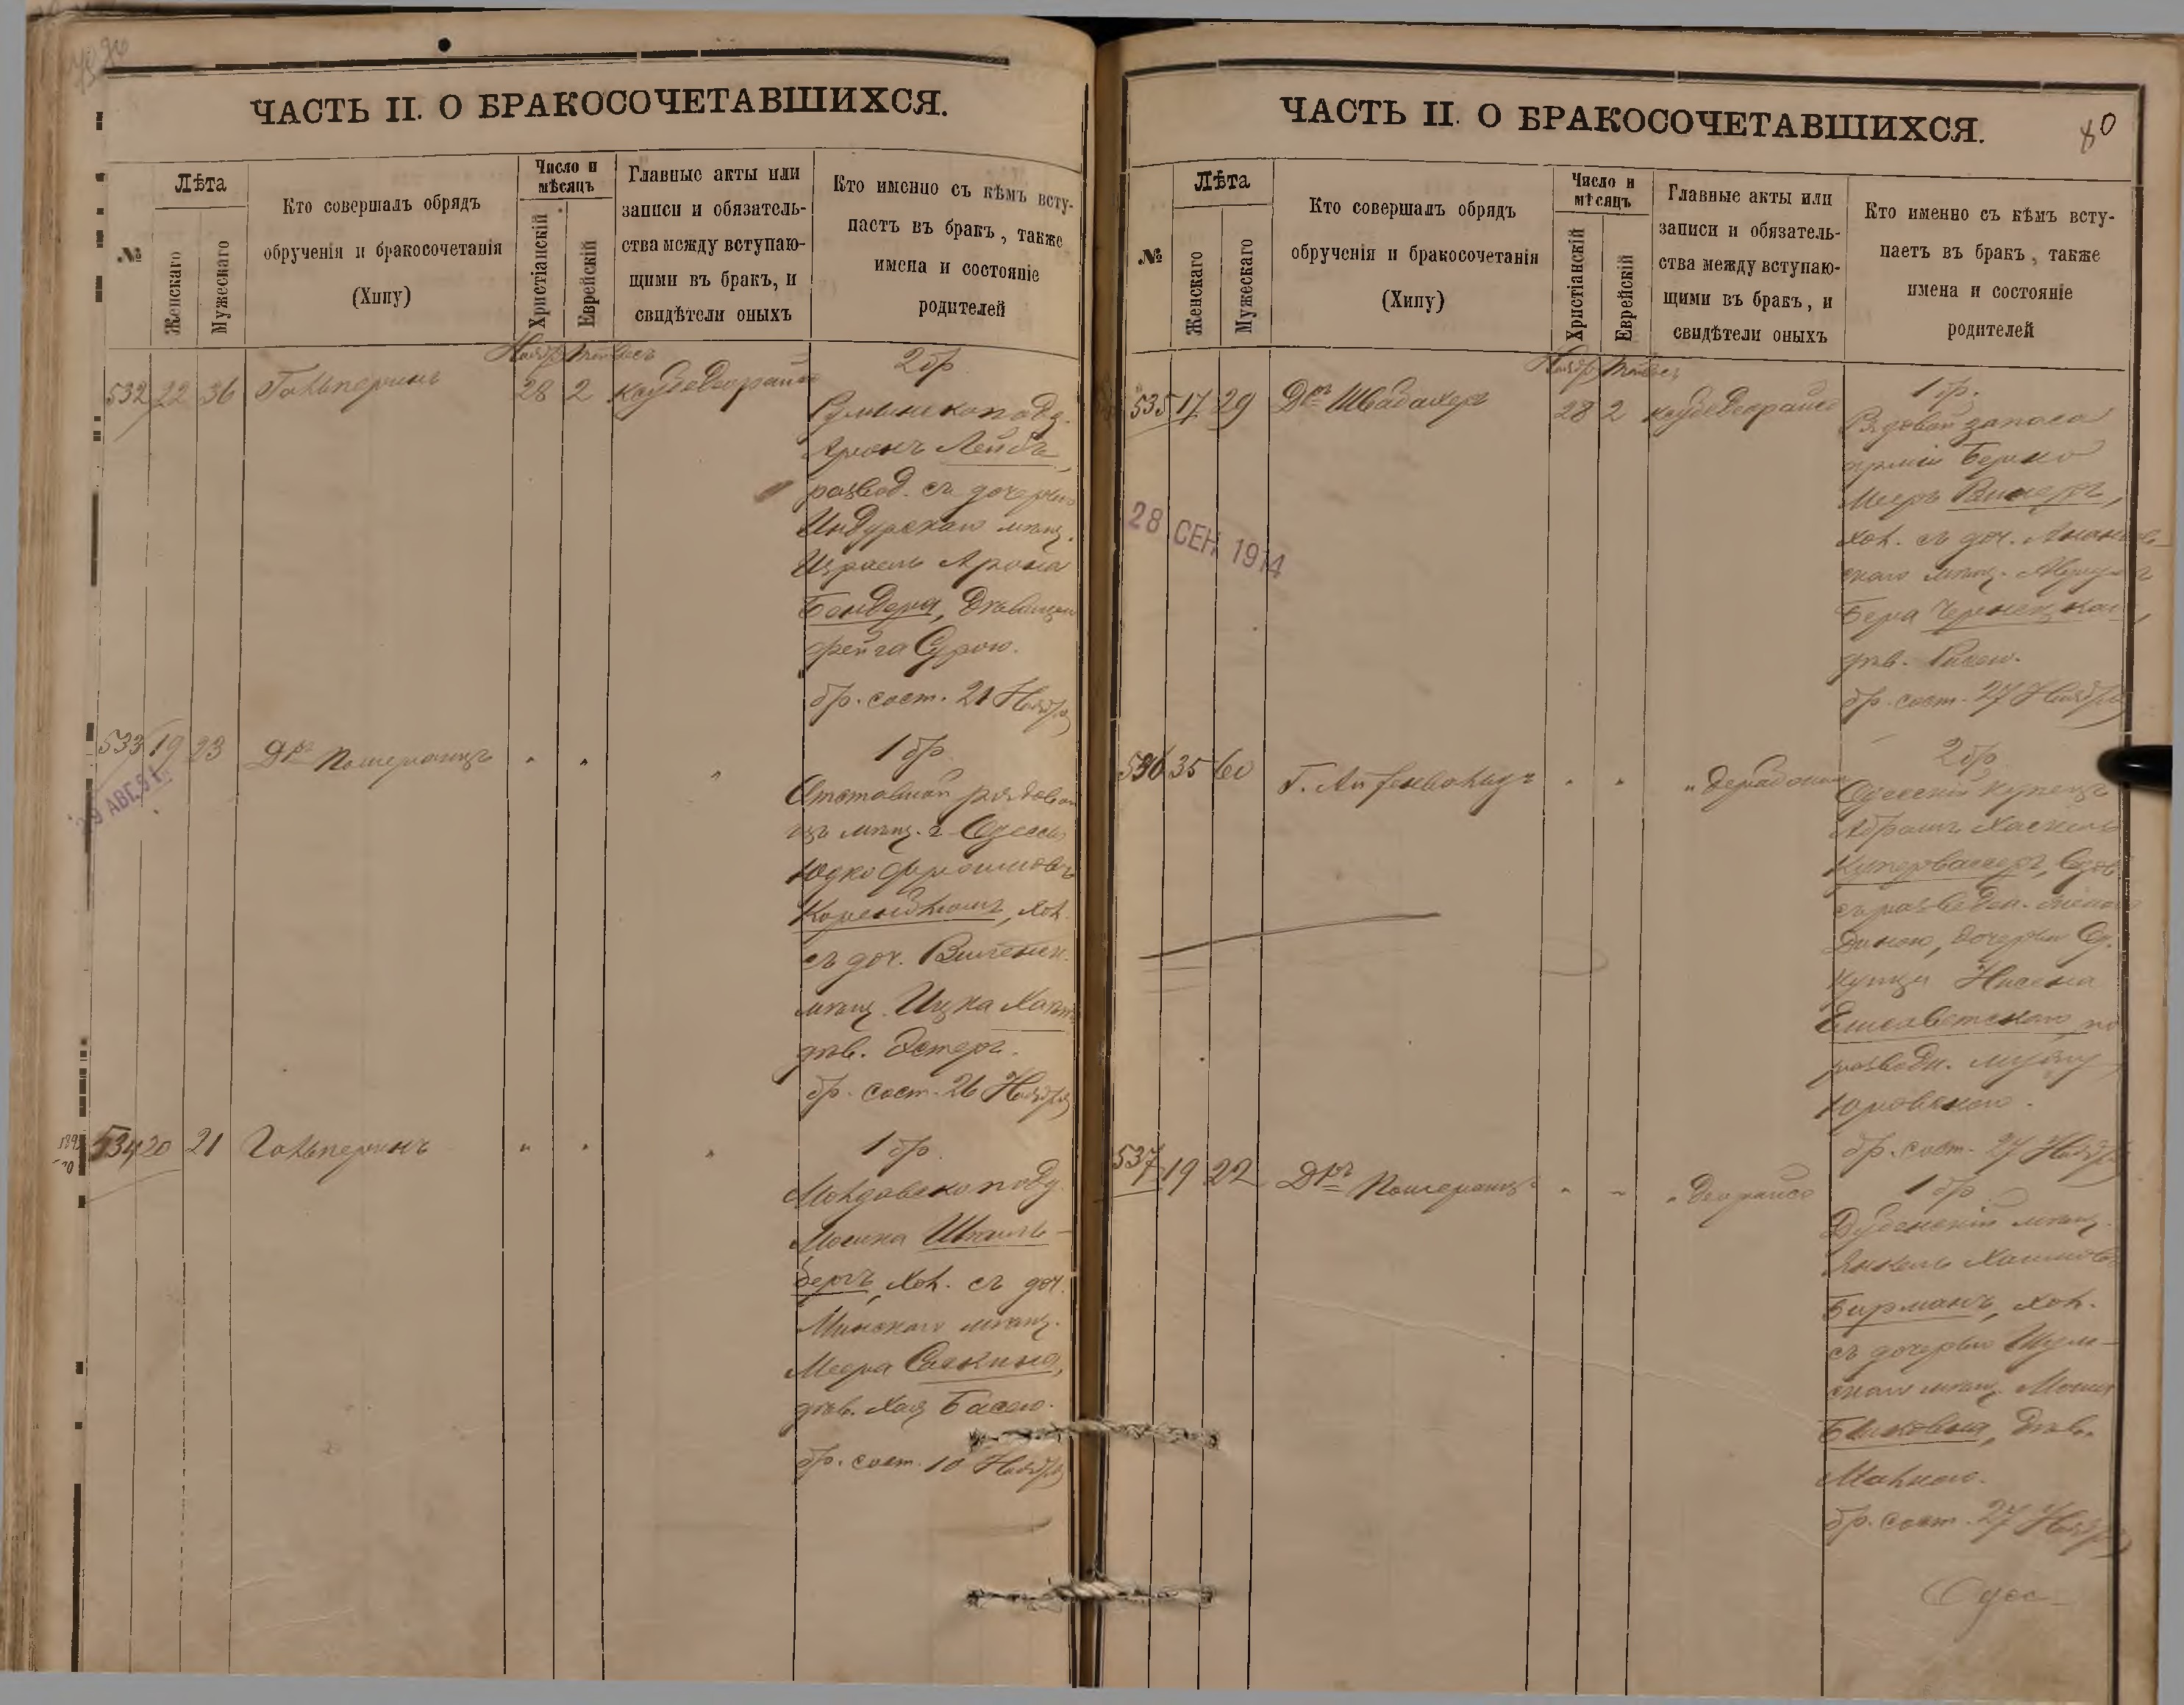 ЧАСТЬ II. О БРАКОСОЧЕТАВШИХСЯ.
№
Лѣта
Женскаго
Мужескаго
Кто совершалъ обрядъ
обрученія и бракосочетанія
(Хипу)
Число и
мѣсяцъ
Христіанскій
Еврейскій
Главные акты или
записи и обязатель-
ства между вступаю-
щими въ бракъ, и
свидѣтели оныхъ
Кто именно съ кѣмъ всту-
паетъ въ бракъ, также
имена и состояніе
родителей
532 22 36 Гальперинъ 28 2
2 бр.
Румынскоподд.
Аронъ Лейбъ,
развод. съ дочерью
Индурскаго мѣщ.
Израель Арона
Бендера, дѣвицею
Фейга Сурою.
бр. сост. 21 Ноября
533 19 23 Дръ Померанцъ " " "
29 АВГ.
1 бр.
Отставной рядовой
изъ мѣщ. г. Одессы
Юдко Фроимовъ
хол.
съ доч.
мѣщ. Ицка
дѣв. Эстеръ.
бр. сост. 26 Ноября
534 20 21 Гальперинъ " " "
1 бр.
Молдавскоподд.
Мошка Штаиль-
бергъ, хол. съ доч.
Минскаго мѣщ.
Меера Соскина,
дѣв. Хая Басею.
бр. сост. 10 Ноября
ЧАСТЬ II. О БРАКОСОЧЕТАВШИХСЯ.
80
№
Лѣта
Женскаго
Мужескаго
Кто совершалъ обрядъ
обрученія и бракосочетанія
(Хипу)
Число и
мѣсяцъ
Христіанскій
Еврейскій
Главные акты или
записи и обязатель-
ства между вступаю-
щими въ бракъ, и
свидѣтели оныхъ
Кто именно съ кѣмъ всту-
паетъ въ бракъ, также
имена и состояніе
родителей
535 17 29 Дръ Швабахеръ 28 2
28 СЕН 1914
1 бр.
Рядовой запаса
арміи Берко
Мееръ Винеръ,
хол. съ доч. Ананьев-
скаго мѣщ. Аврумъ
Бера Чернецкаго,
дѣв. Рисею.
бр. сост. 27 Ноября
536 35 60 Г. Айзенвольдъ " "
2 бр.
Одесскій купецъ
Абрамъ Хаскель
Купервассеръ, вдов.
съ разведен. женою
Диною, дочерью Од.
купца Нисена
Елисаветскаго по
разводн. мужу
Юровскою.
бр. сост. 27 Ноября
537 19 22 Дръ Померанцъ " "
1 бр.
Дубенскій мѣщ.
Янкель Хаимовъ
Бирманъ, хол.
съ дочерью
скаго мѣщ. Мошка
Быховыя, дѣв.
Малкою.
бр. сост. 27 Ноября
Одес-